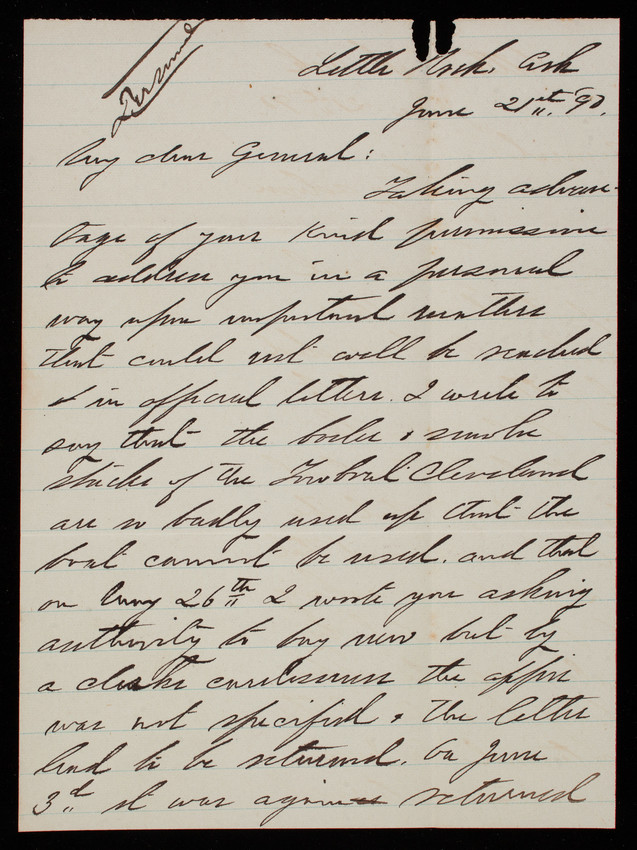 Personal
Little Rock, Ark
June 21st '90.
My dear General:
Taking advan-
tage of your kind permission
to address you in a personal
way upon important matters
that could not well be reached
in official letters. I write to
say that the boiler & smoke
stacks of the Snowboat Cleveland
are so badly used up that the
boat cannot be used. and that
on May 26th I wrote you asking
authority to buy new but by
a clerks carelessness the appn
was not specified & the letter
had to be returned. On June
3d it was again returned